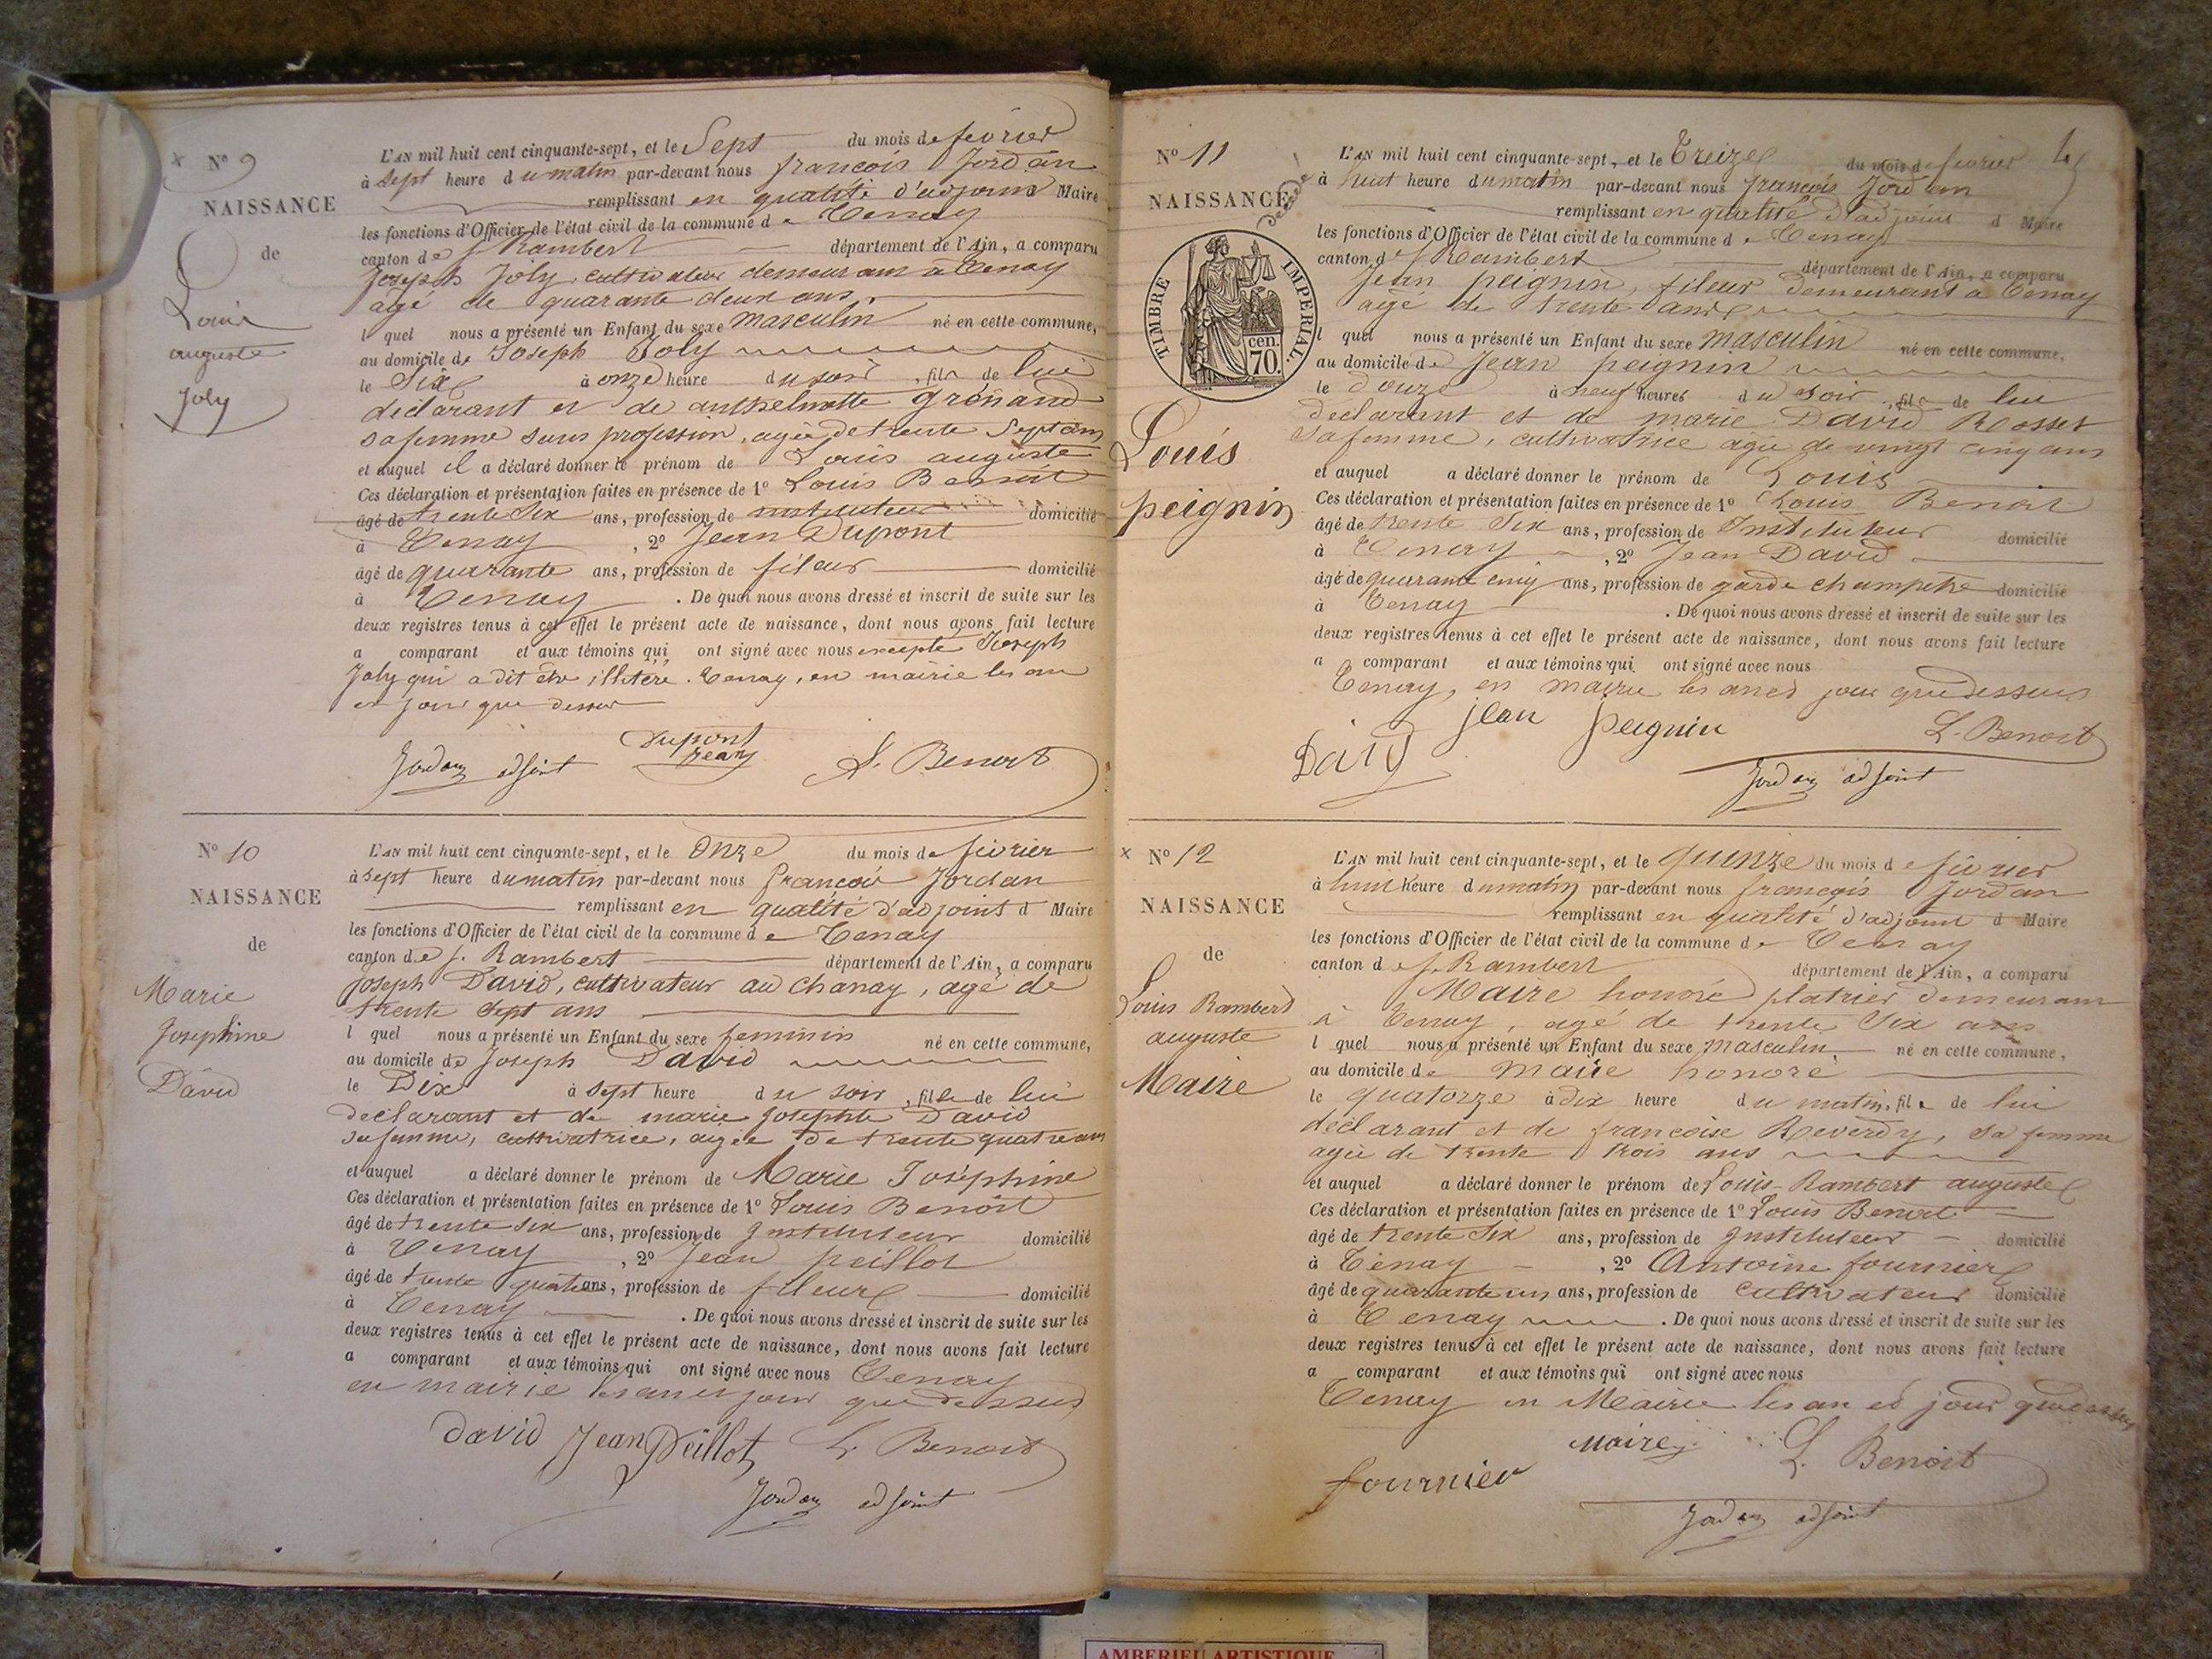 N° 9
NAISSANCE
de
Louis
auguste
Joly
L'AN mil huit cent cinquante-sept, et le Sept du mois de fevrier
à sept heure du matin par-devant nous francois Jordan
remplissant en qualité d'adjoint Maire
les fonctions d'Officier de l'état civil de la commune de Tenay
canton de St Rambert département de l'Ain, a comparu
Joseph Joly, cultivateur demeurant à Tenay
agé de quarante deux ans,
l quel nous a présenté un Enfant du sexe masculin né en cette commune,
au domicile de Joseph Joly
le Six à onze heure du soir, fils de lui
déclarant et de anthelmette grénand
sa femme sans profession, agée de trente Sept ans
et auquel il a déclaré donner le prénom de Louis auguste
Ces déclaration et présentation faites en présence de 1° Louis Benoit
âgé de trente Six ans, profession de instituteur domicilié
à Tenay, 2° Jean Dupont
âgé de quarante ans, profession de fileur domicilié
à Tenay. De quoi nous avons dressé et inscrit de suite sur les
deux registres tenus à cet effet le présent acte de naissance, dont nous avons fait lecture
a comparant et aux témoins qui ont signé avec nous excepté Joseph
Joly qui a dit être illitéré. Tenay, en mairie les an
et jour que dessus
Jordan adjoint Dupont Jean L. Benoit
N° 10
NAISSANCE
de
Marie
Josephine
David
L'AN mil huit cent cinquante-sept, et le Onze du mois de février
à sept heure du matin par-devant nous françois Jordan
remplissant en qualité d'adjoint d Maire
les fonctions d'Officier de l'état civil de la commune de Tenay
canton de St. Rambert département de l'Ain, a comparu
Joseph David, cultivateur au chanay, agé de
trente Sept ans
l quel nous a présenté un Enfant du sexe feminin né en cette commune,
au domicile de Joseph David
le Dix à sept heure du soir, fille de lui
declarant et de marie Josephte David
sa femme, cultivatrice, agée de trente quatre ans
et auquel a déclaré donner le prénom de Marie Joséphine
Ces déclaration et présentation faites en présence de 1° Louis Benoit
âgé de trente six ans, profession de Instituteur domicilié
à Tenay, 2° Jean peillot
âgé de trente quatre ans, profession de fileur domicilié
à Tenay. De quoi nous avons dressé et inscrit de suite sur les
deux registres tenus à cet effet le présent acte de naissance, dont nous avons fait lecture
a comparant et aux témoins qui ont signé avec nous Tenay
en mairie les an et jour que dessus
David Jean Peillot L. Benoit
Jordan adjoint
4
N° 11
NAISSANCE
décédé
TIMBRE IMPERIAL.
cen.
70.
Louis
peignin
L'AN mil huit cent cinquante-sept, et le Treize du mois de fevrier
à huit heure du matin par-devant nous françois Jordan
remplissant en qualité d'adjoint d Maire
les fonctions d'Officier de l'état civil de la commune de Tenay
canton de St Rambert département de l'Ain, a comparu
Jean peignin, fileur demeurant à Tenay
agé de trente ans
l quel nous a présenté un Enfant du sexe masculin né en cette commune,
au domicile de Jean peignin
le douze à neuf heures du soir, fils de lui
declarant et de marie David Rosset
sa femme, cultivatrice agée de vingt cinq ans
et auquel a déclaré donner le prénom de Louis
Ces déclaration et présentation faites en présence de 1° Louis Benoit
âgé de trente Six ans, profession de Instituteur domicilié
à Tenay, 2° Jean David
âgé de quarante cinq ans, profession de garde champetre domicilié
à Tenay. De quoi nous avons dressé et inscrit de suite sur les
deux registres tenus à cet effet le présent acte de naissance, dont nous avons fait lecture
a comparant et aux témoins qui ont signé avec nous
Tenay, en mairie les an et jour que dessus
David jean peignin L. Benoit
Jordan adjoint
N° 12
NAISSANCE
de
Louis Rambert
auguste
Maire
L'AN mil huit cent cinquante-sept, et le quinze du mois de février
à huit heure du matin par-devant nous francois Jordan
remplissant en qualité d'adjoint d Maire
les fonctions d'Officier de l'état civil de la commune de Tenay
canton de St. Rambert département de l'Ain, a comparu
Maire honoré platrier demeurant
à Tenay, agé de trente Six ans
l quel nous a présenté un Enfant du sexe masculin né en cette commune,
au domicile de Maire honoré
le quatorze à dix heure du matin, fils de lui
déclarant et de francoise Reverdy, sa femme
agée de trente trois ans
et auquel a déclaré donner le prénom de Louis-Rambert auguste
Ces déclaration et présentation faites en présence de 1° Louis Benoit
âgé de trente Six ans, profession de Instituteur domicilié
à Tenay, 2° Antoine fournier
âgé de quarante un ans, profession de cultivateur domicilié
à Tenay. De quoi nous avons dressé et inscrit de suite sur les
deux registres tenus à cet effet le présent acte de naissance, dont nous avons fait lecture
a comparant et aux témoins qui ont signé avec nous
Tenay en Mairie les an et jour que dessus
fournier Maire L. Benoit
Jordan adjoint
AMBERIEU ARTISTIQUE